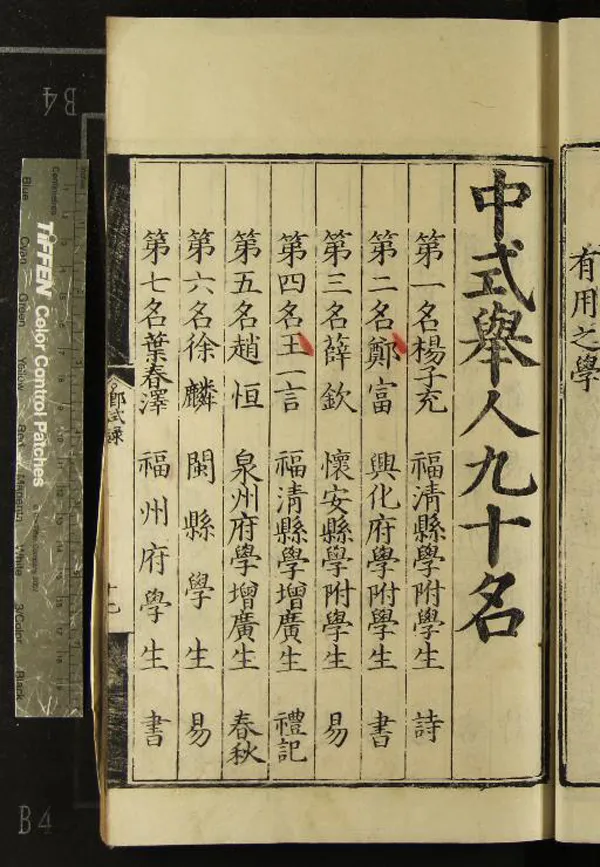 有用之學
中式舉人九十名
第一名楊子充 福清縣學附學生 詩
第二名鄭富 興化府學附學生 書
第三名薛欽 懷安縣學附學生 易
第四名王一言 福清縣學增廣生 禮記
第五名趙恒 泉州府學增廣生 春秋
第六名徐麟 閩縣學生 易
第七名葉春澤 福州府學生 書
TIFFEN Color Control Patches
Blue
Cyan
Green
Yellow
Red
Magenta
White
3/Color
Black
Centimetres
B4
B4